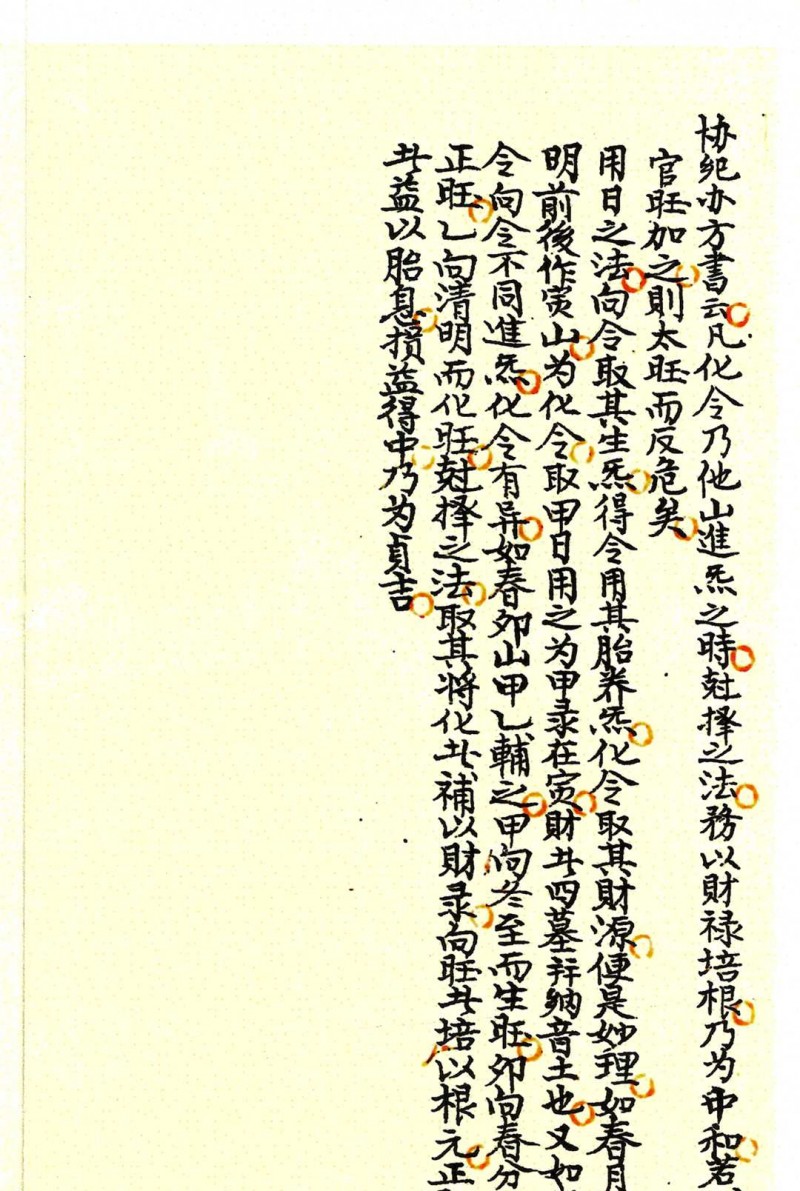 协纪办方書云凡化令乃他山進炁之時尅择之法務以財禄培根乃为中和若
官旺加之則太旺而反危矣
用日之法向令取其生炁得令用其胎养炁化令取其財源便是妙理如春月
明前後作寅山为化令取甲日用之为甲录在寅財廾四墓辛纳音土也又如
令向令不同進炁化令有异如春卯山甲乙輔之甲向冬至而生旺卯向春分
正旺乙向清明而化旺尅择之法取其将化廾補以財录向旺廾培以根元正
廾益以胎息损益得中乃为貞吉